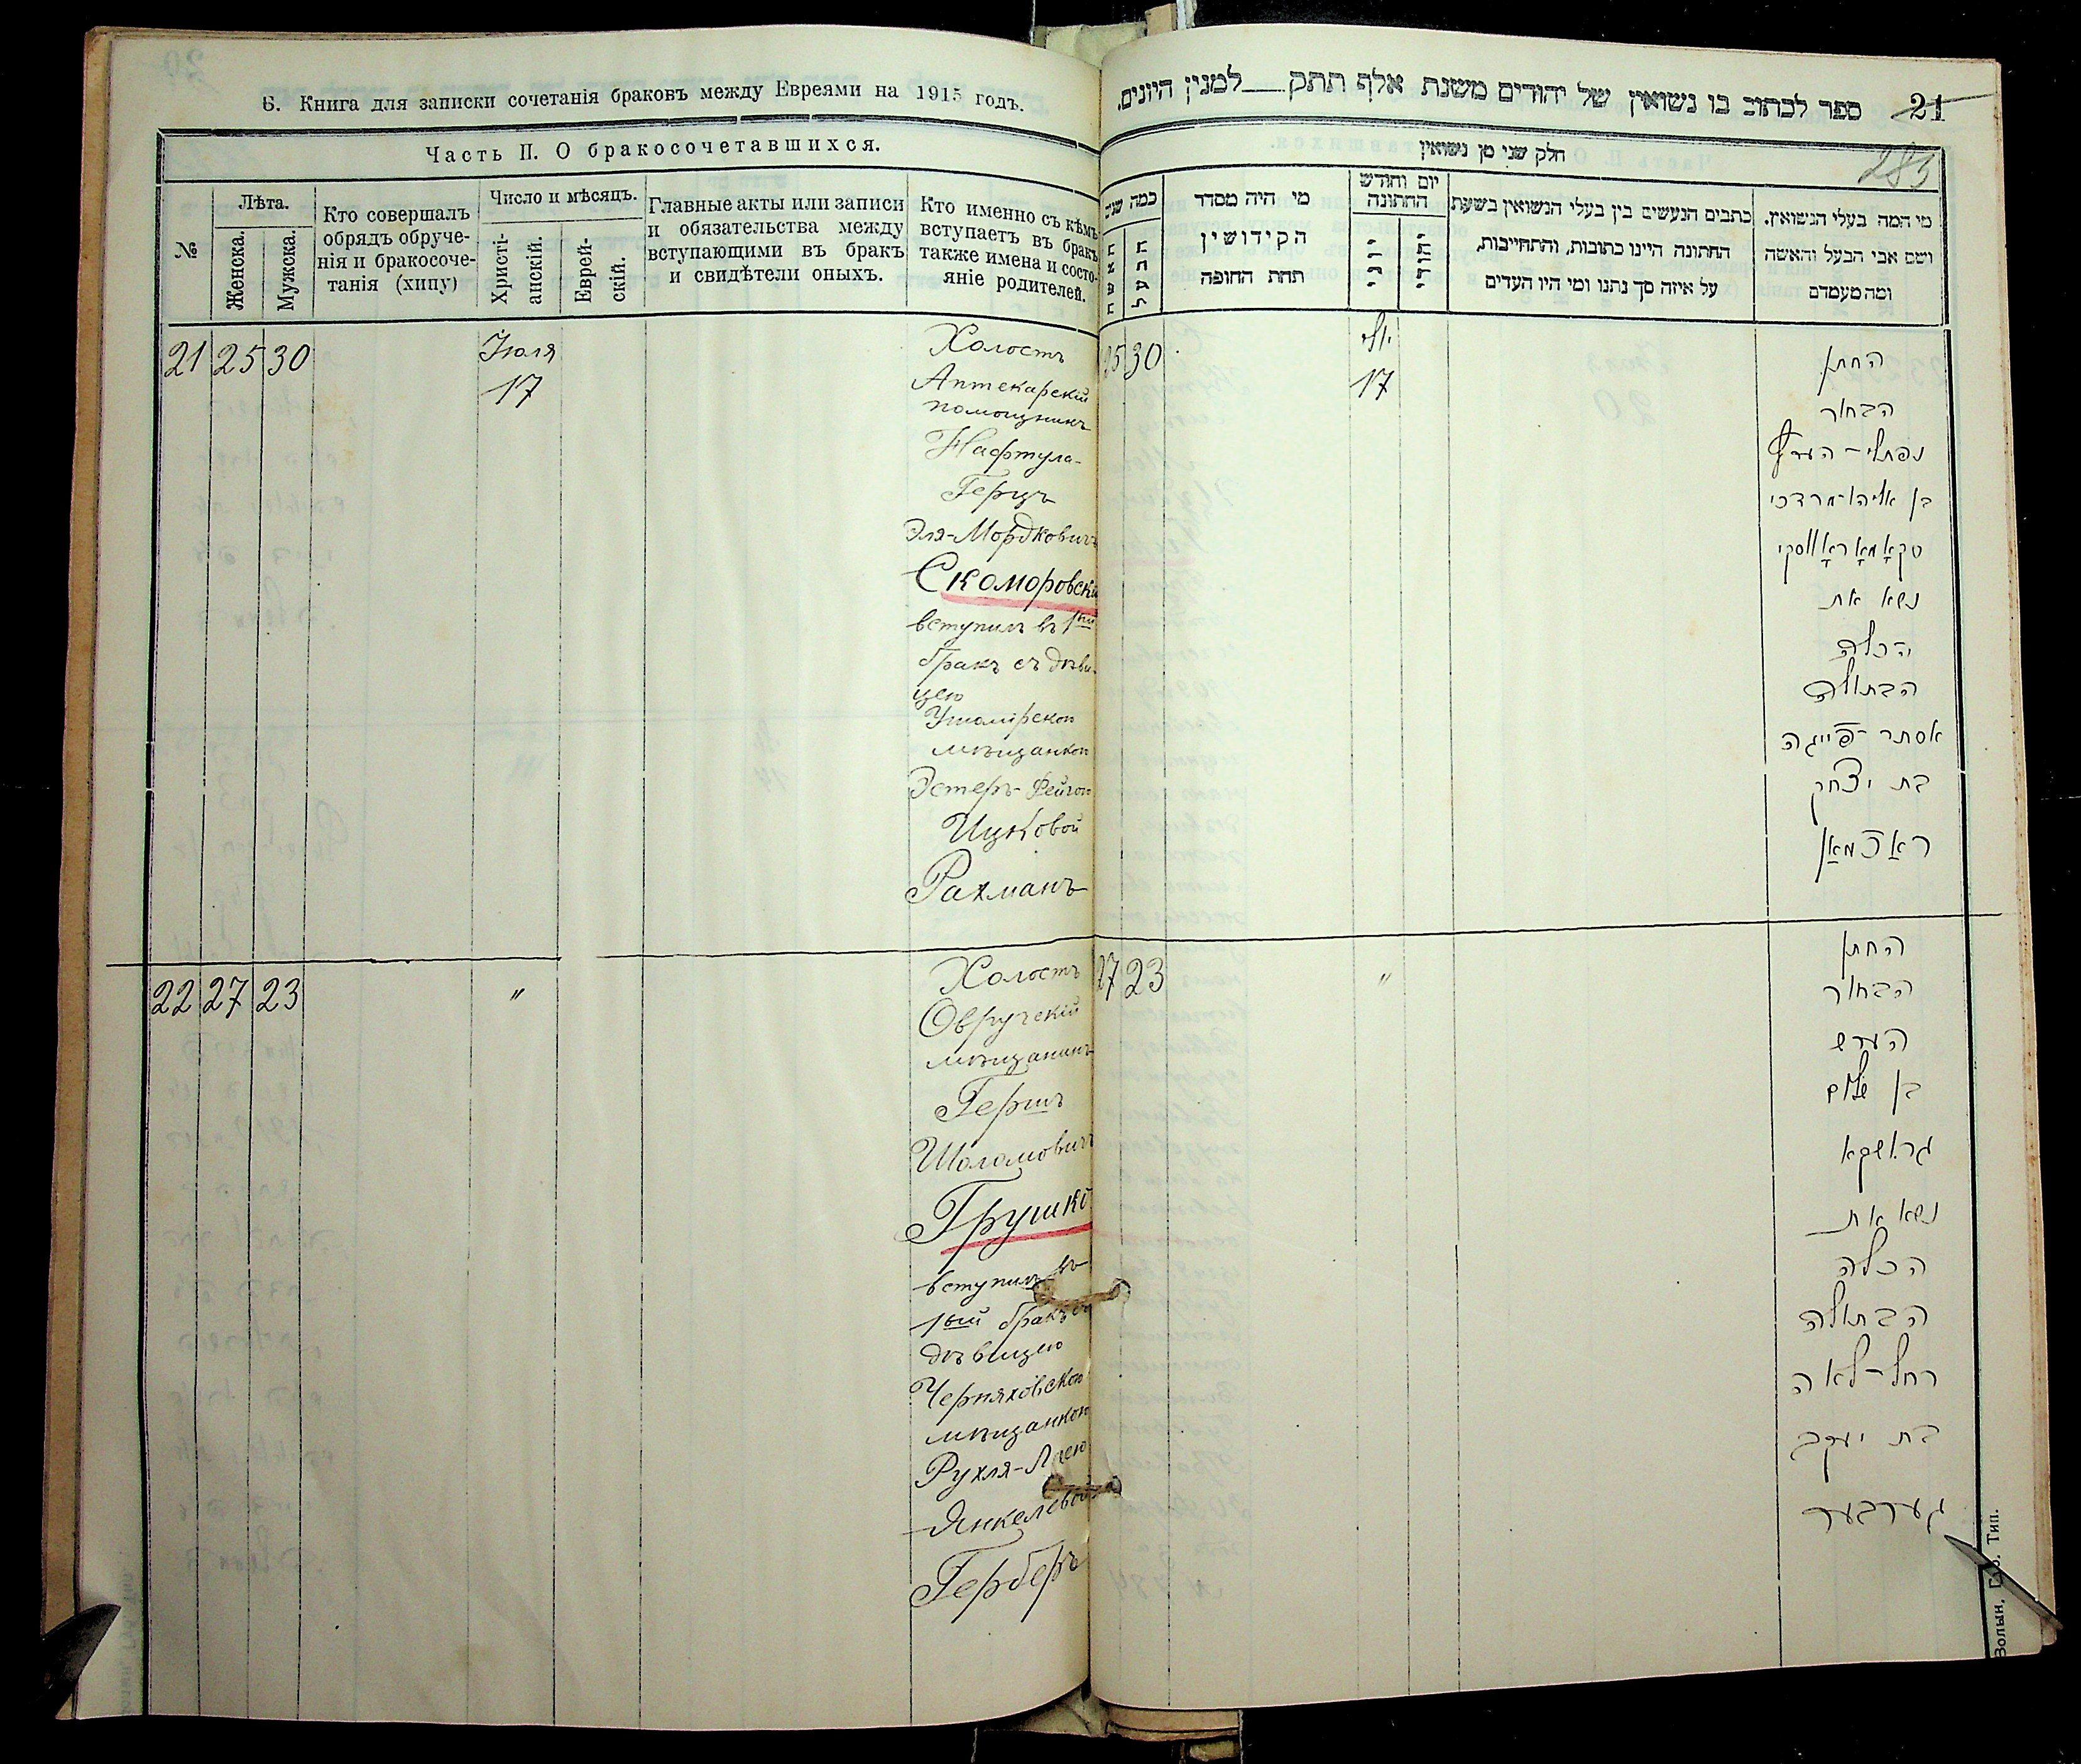 Б. Книга для записки сочетанія браковъ между Евреями на 1915 годъ.
Часть II. О бракосочетавшихся.
№
Лѣта.
Женска.
Мужска.
Кто совершалъ
обрядъ обруче-
нія и бракосоче-
танія (хипу)
Число и мѣсяцъ.
Христі-
анскій.
Еврей-
скій.
Главные акты или записи
и обязательства между
вступающими въ бракъ
и свидѣтели оныхъ.
Кто именно съ кѣмъ
вступаетъ въ бракъ
также имена и состо-
яніе родителей.
21 25 30
Іюля
17
Холостъ
Аптекарскій
помощникъ
Нафтула-
Герцъ
Эля-Мордковичъ
Скоморовскі
вступилъ въ 1ый
бракъ съ дѣви-
цею
Ушомірскою
мѣщанкою
Эстеръ-Фейгою
Ицковой
Рахманъ
22 27 23
"
Холостъ
Овручскій
мѣщанинъ
Гершъ
Шоломовичъ
Грушко
вступилъ въ
1ый бракъ съ
дѣвицею
Черняховскою
мѣщанкою
Рухля-Леею
Янкелевой
Герберъ
ספר לכתוב בו נשואין של יהודים משנת אלף תתק___למנין היונים.
21
283
חלק שני מן נשואין
מי המה בעלי הנשואין.
ושם אבי הבעל והאשה
ומה מעמדם
כתבים הנעשים בין בעלי הנשואין בשעת
החתונה היינו כתובות, והתחייבות,
על איזה סך נתנו ומי היו העדים
יום וחודש
החתונה
מי היה מסדר
הקידושין
תחת החופה
כמה שנים
25 30
יולי
17
החתן
הבחור
נפתלי-הערץ
בן אליהו-מרדכי
סקאָמאָראָווסקי
נשא את
הכלה
הבתולה
אסתר-פייגה
בת יצחק
ראַכמאַן
27 23
"
החתן
הבחור
הערש
בן שלום
גרושקא
נשא את
הכלה
הבתולה
רחל-לאה
בת יעקב
גערבער
Волын. Губ. Тип.